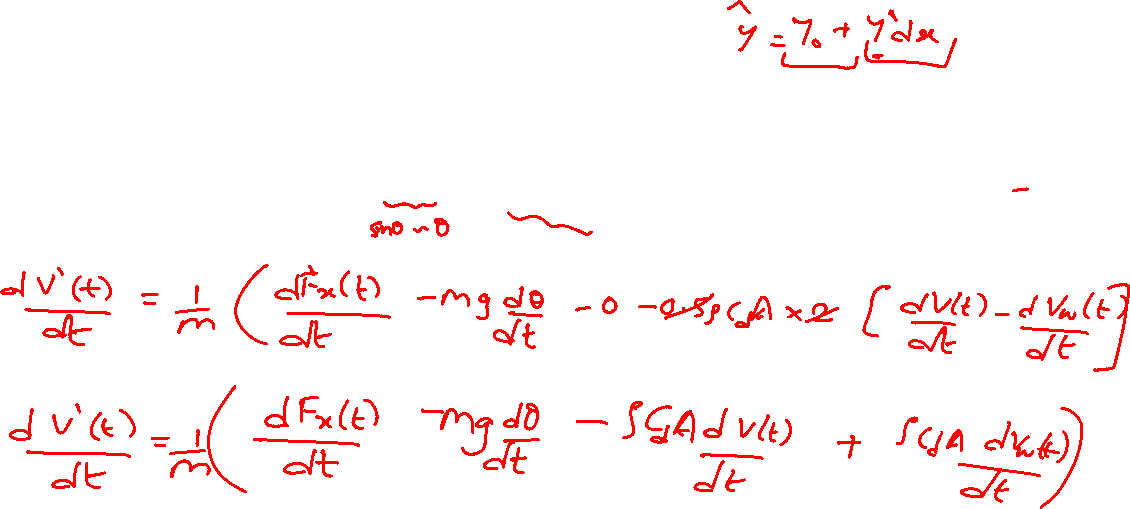 ŷ = y₀ + y'dx
sinθ ~ θ
dV'(t)/dt = 1/m ( dFx(t)/dt - mg dθ/dt - 0 - 0.5ρCdA × 2 [ dV(t)/dt - dVw(t)/dt ]
dV'(t)/dt = 1/m ( dFx(t)/dt - mg dθ/dt - ρCdA dV(t)/dt + ρCdA dVw(t)/dt )